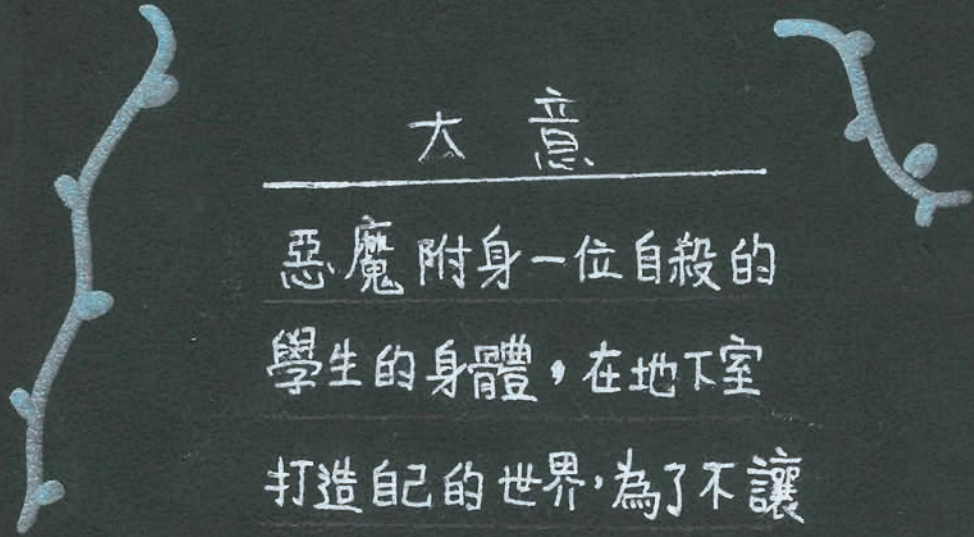 大意
惡魔附身一位自殺的
學生的身體，在地下室
打造自己的世界，為了不讓